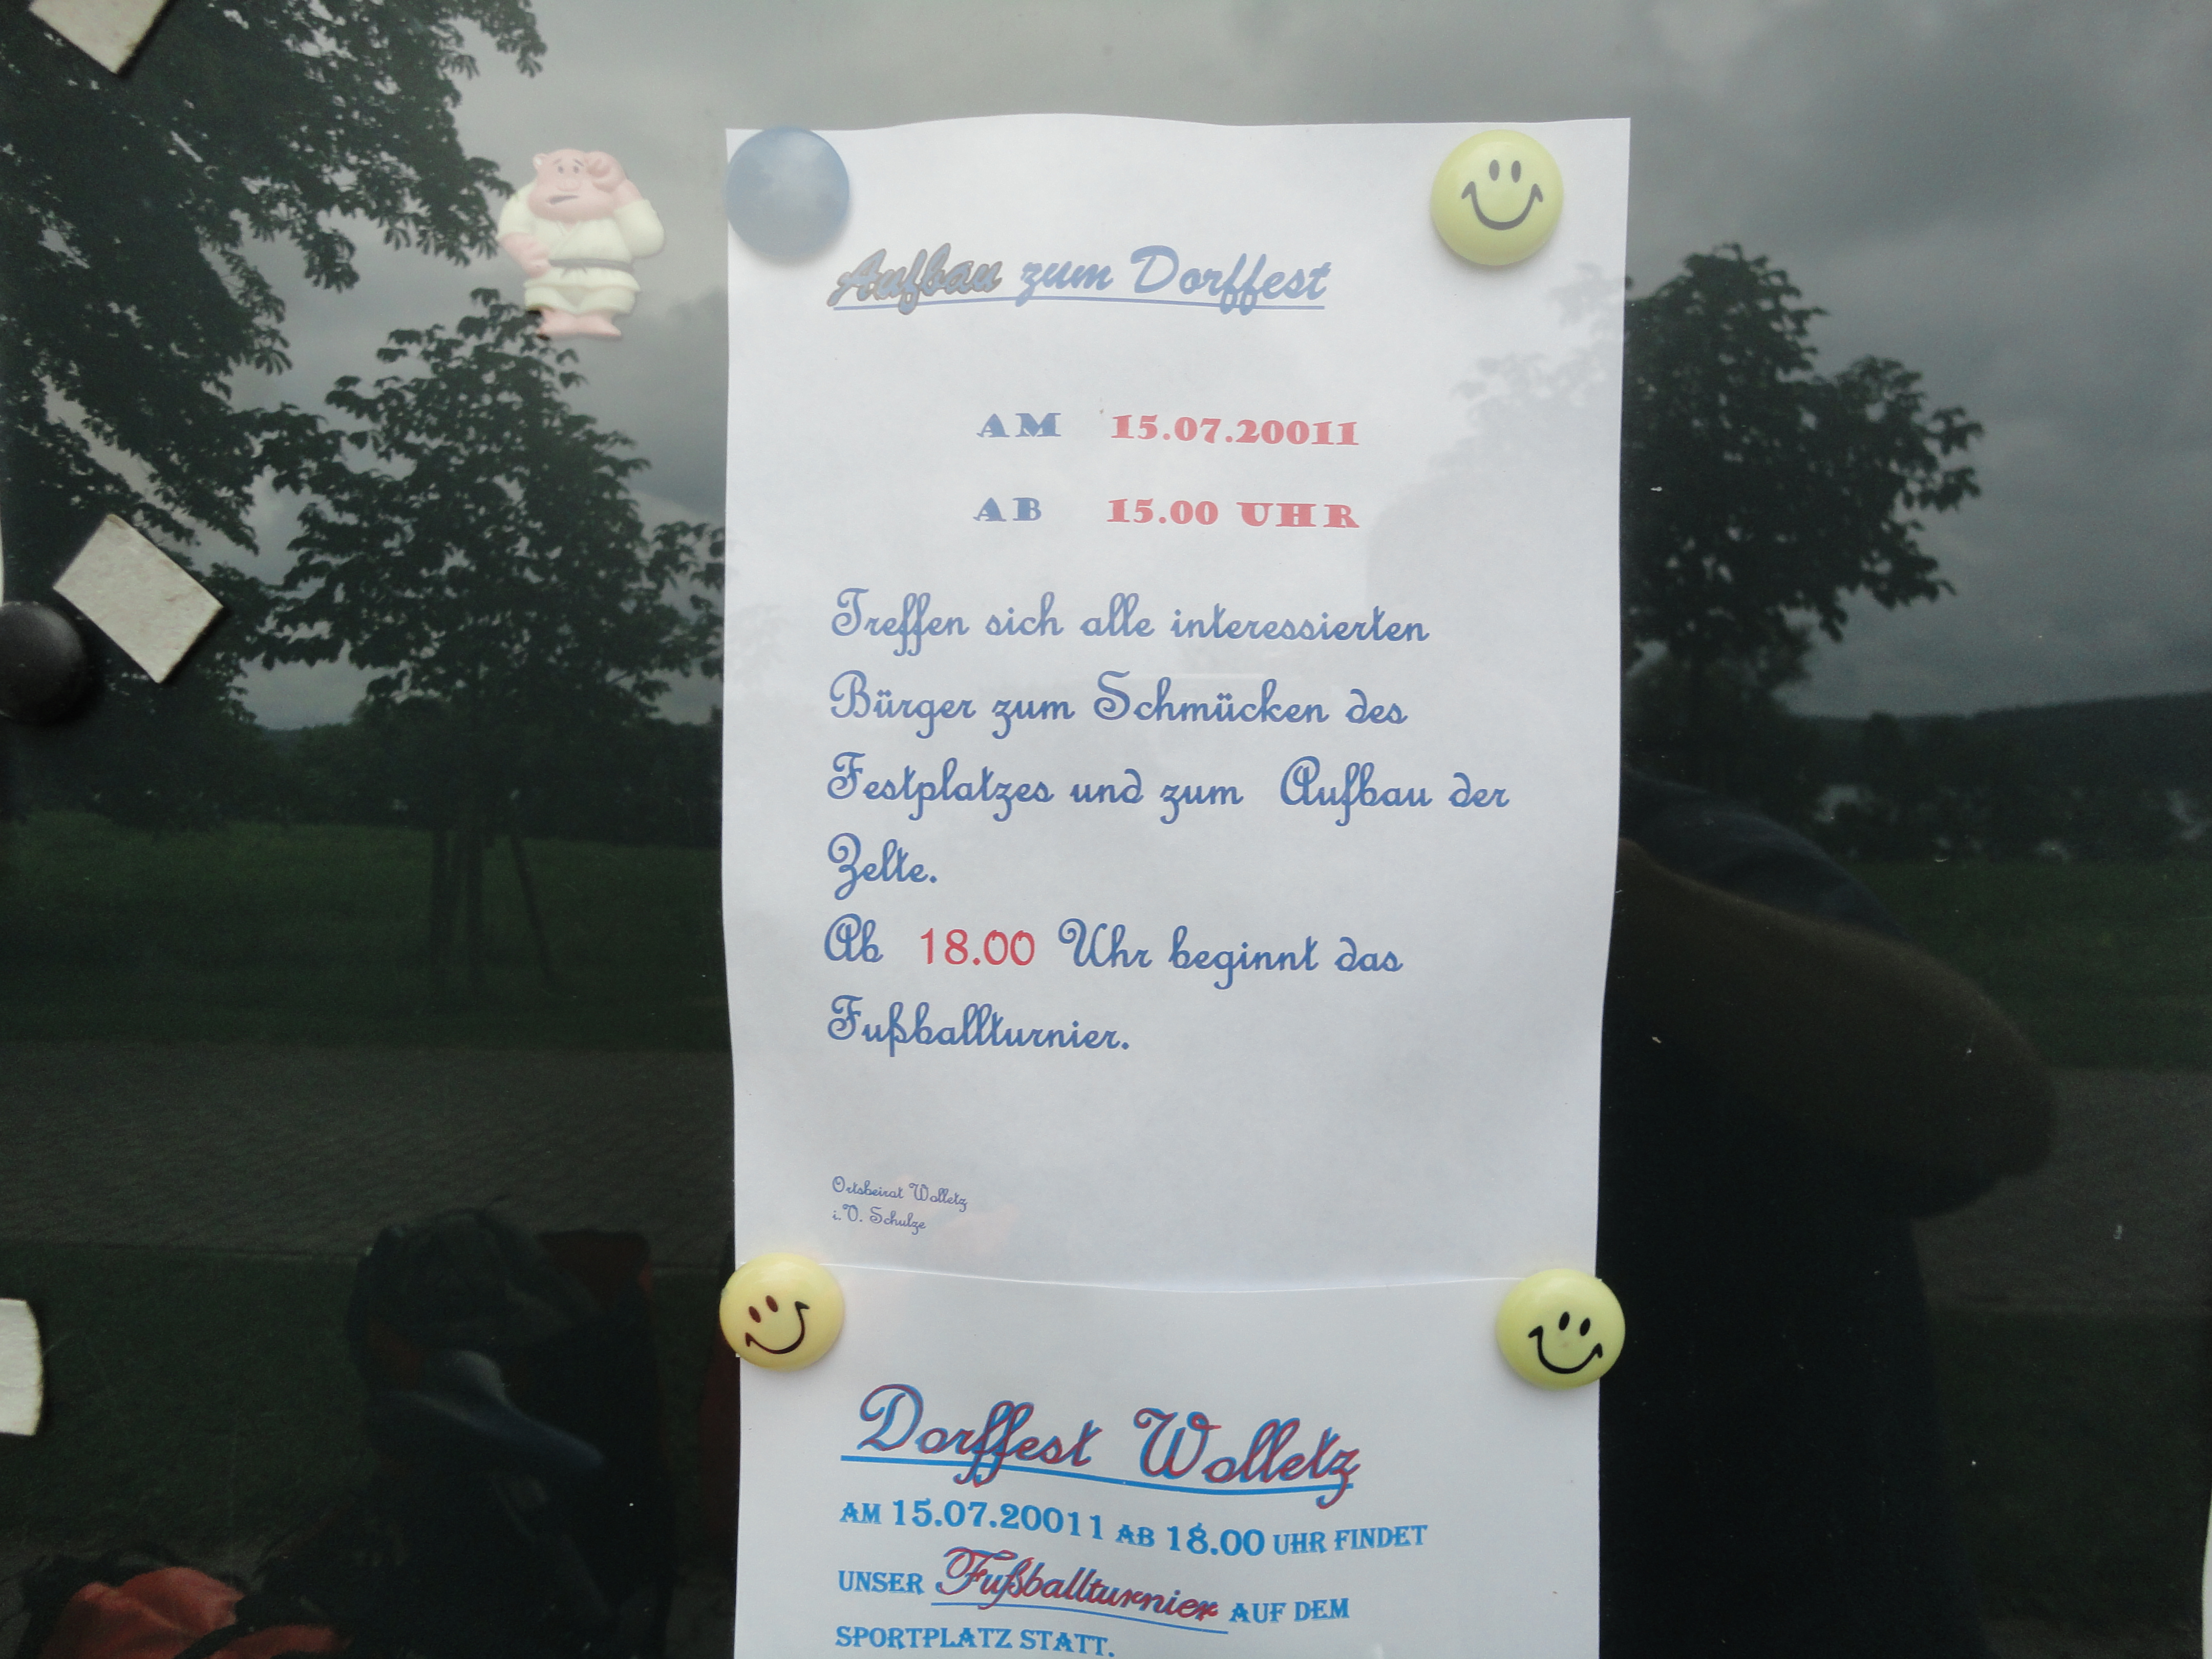 Aufbau zum Dorffest
AM 15.07.20011
AB 15.00 UHR
Treffen sich alle interessierten
Bürger zum Schmücken des
Festplatzes und zum Aufbau der
Zelte.
Ab 18.00 Uhr beginnt das
Fußballturnier.
Ortsbeirat Wolletz
i.V. Schulze
Dorffest Wolletz
AM 15.07.20011 AB 18.00 UHR FINDET
UNSER Fußballturnier AUF DEM
SPORTPLATZ STATT.